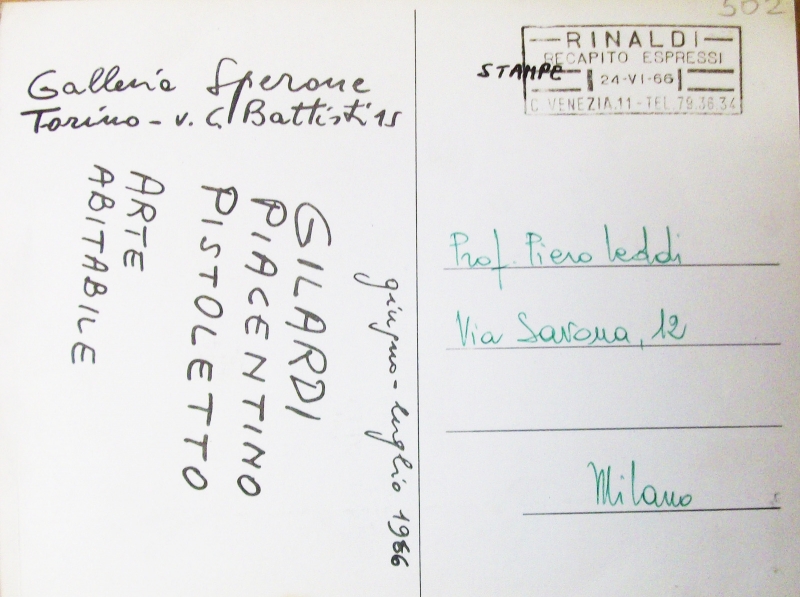 Galleria Sperone
Torino - v. C. Battisti 15
giugno - luglio 1966
GILARDI
PIACENTINO
PISTOLETTO
ARTE
ABITABILE
502
STAMPE
RINALDI
RECAPITO ESPRESSI
24-VI-66
C. VENEZIA, 11 - TEL. 79.36.34
Prof. Piero Leddi
Via Savona, 12
Milano